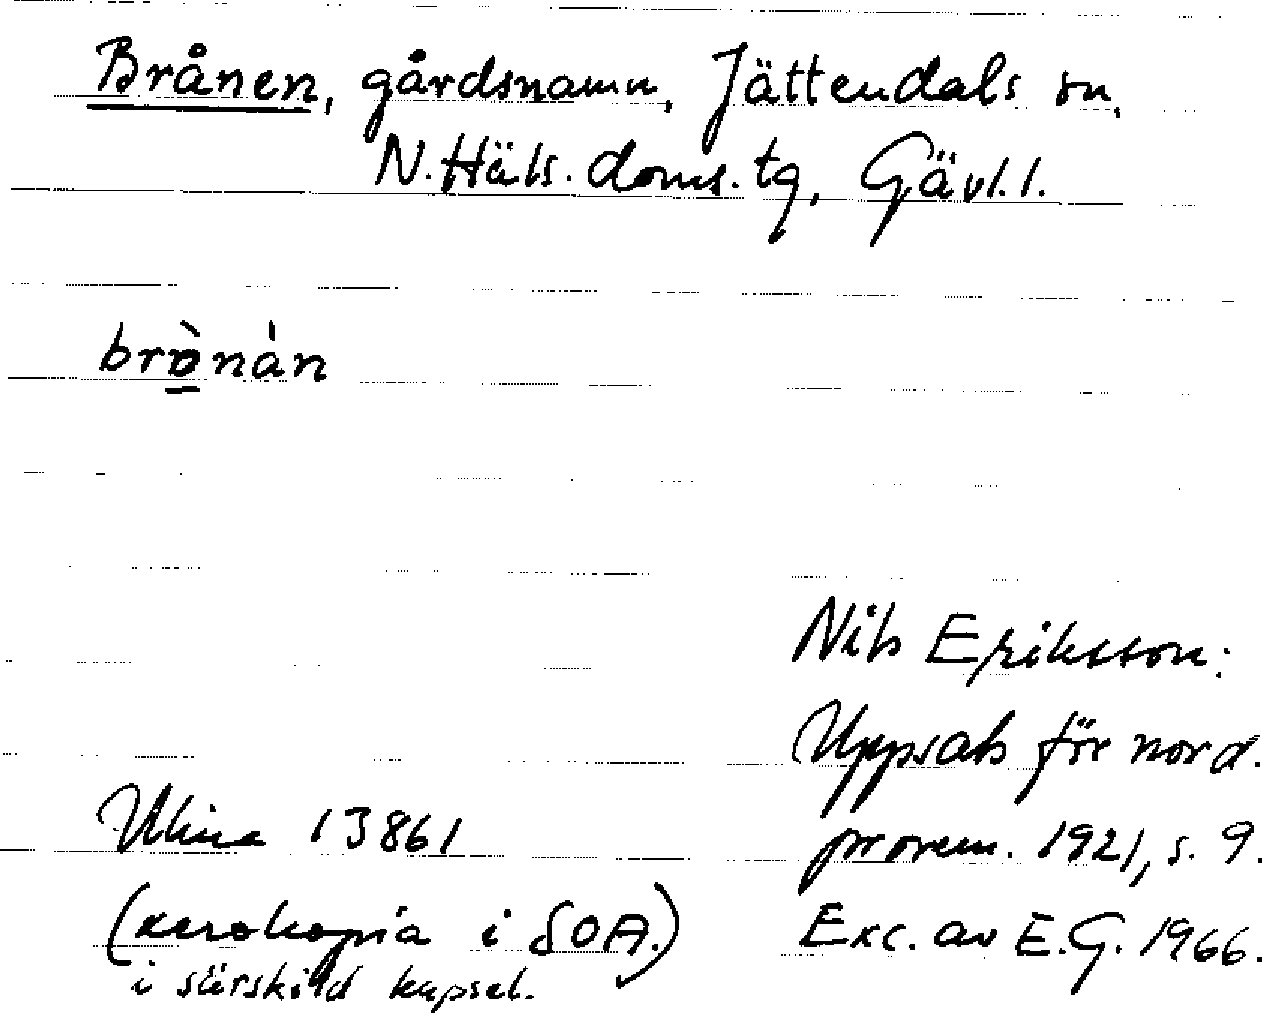 Brånen, gårdsnamn, Jättendals sn,
N. Häls. doms. tg, Gävl. l.
brò̱nàn
Nils Eriksson:
Uppsats för nord.
prorem. 1921, s. 9.
Ulma 13861
(xerokopia i SOA.)
i särskild kapsel.
Exc. av E.G. 1966.